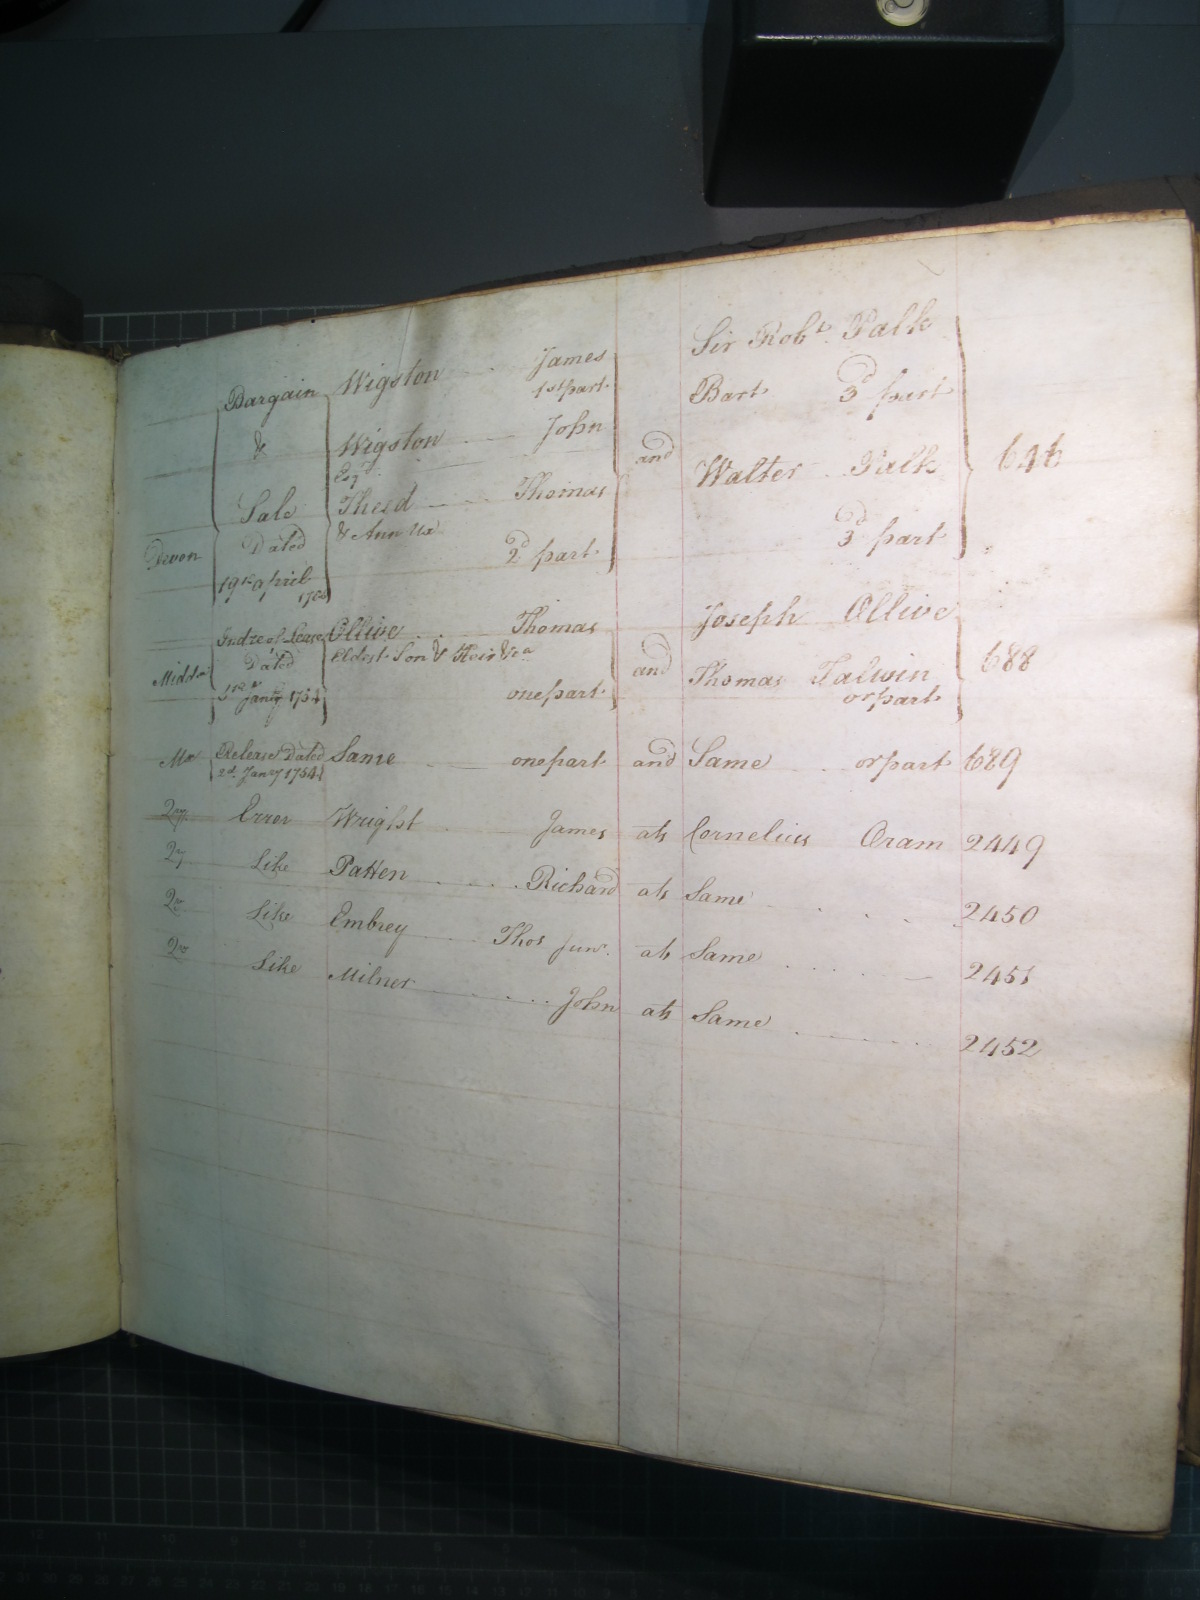 Bargain Wigston James Sir Robt. Palk
1st part
& Wigston John and Bart 3d part 646
Esqr.
Sale Theed Thomas Walter Palk
Devon Dated & Ann Ux 2d part 3d part
19th april
Indre of Lease Ollive Thomas Joseph Ollive
Middx Dated Eldest Son & Heir &ca and Thomas Talwin 688
1st Jany 1754 one part or part
Mx Release Dated Same one part and Same or part 689
2d. Jany 1754
Error Wright James ats Cornelius Oram 2449
Like Patten Richard ats Same 2450
Like Embrey Thos Junr. ats Same 2451
Like Milner John ats Same 2452